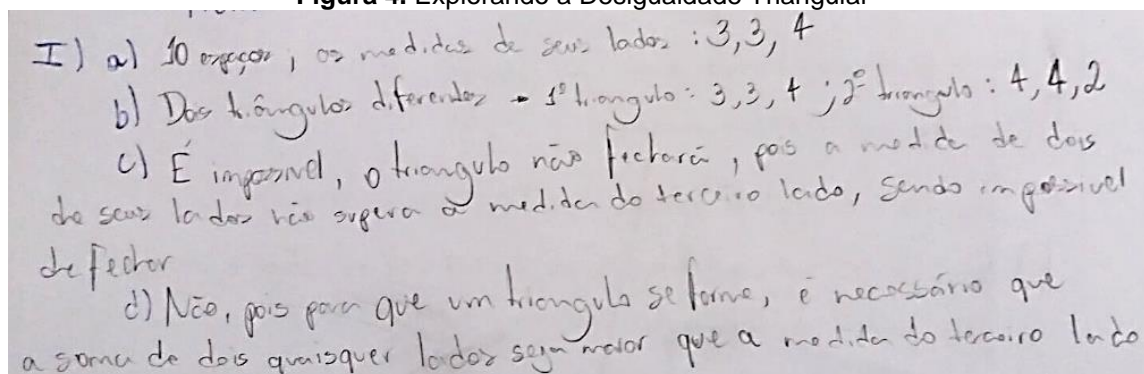 Figura 4. Explorando a Desigualdade Triangular
I) a) 10 espaços, as medidas de seus lados : 3, 3, 4
b) Dois triângulos diferentes → 1º triangulo : 3, 3, 4 ; 2º triangulo : 4, 4, 2
c) É impossível, o triangulo não fechará, pois a medida de dois
de seus lados não supera a medida do terceiro lado, sendo impossivel
de fechar
d) Não, pois para que um triangulo se forme, é necessário que
a soma de dois quaisquer lados seja maior que a medida do terceiro lado